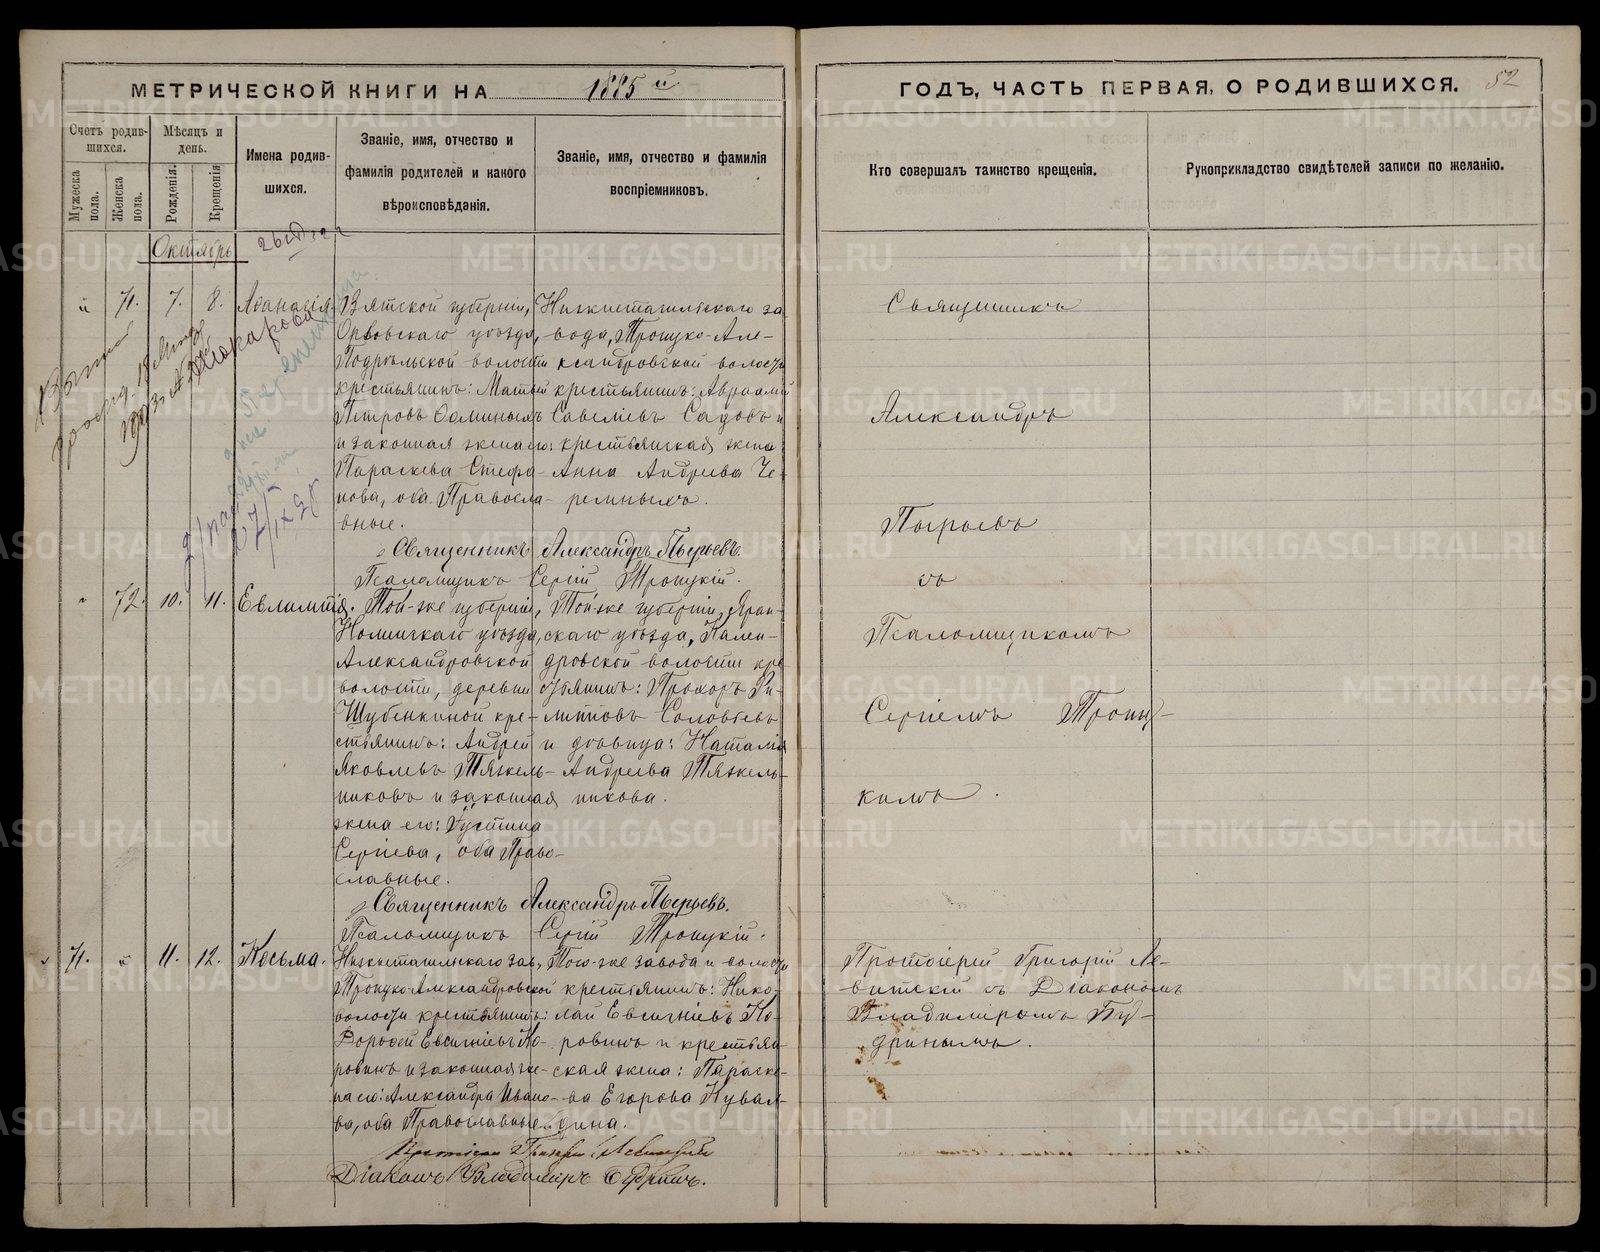 МЕТРИЧЕСКОЙ КНИГИ НА 1885 й
ГОДЪ, ЧАСТЬ ПЕРВАЯ, О РОДИВШИХСЯ.
52
Счетъ родив-
шихся.
Мужеска
пола.
Женска
пола.
Мѣсяцъ и
день.
Рожденія.
Крещенія
Имена родив-
шихся.
Званіе, имя, отчество и
фамилія родителей и какого
вѣроисповѣданія.
Званіе, имя, отчество и фамилія
воспріемниковъ.
Кто совершалъ таинство крещенія.
Рукоприкладство свидѣтелей записи по желанію.
Октябрь
71. 7. 8.
Аѳанасія.
Вятской губерніи,
Орловскаго уѣзда,
Подрѣльской волости
крестьянинъ: Матѳій
Петровъ Ѳоминыхъ
и законная жена его:
Параскева Стефа-
нова, оба Правосла-
вные.
Нижнетагильскаго за
вода, Троицко-Але-
ксандровской волости
крестьянинъ: Авраамій
Савеліевъ Садовъ и
крестьянская жена
Анна Андреева Че-
ремныхъ.
Священникъ Александръ Пырьевъ.
Псаломщикъ Сергій Троицкій.
Священникъ
Александръ
Пырьевъ
съ
Псаломщикомъ
Сергіемъ Троиц-
кимъ.
72. 10. 11.
Евлампія.
Той-же губерніи,
Нолинскаго уѣзда,
Александровской
волости, деревни
Шубенкиной кре-
стьянинъ: Андрей
Яковлевъ Тяжель-
никовъ и законная
жена его: Іустина
Сергіева, оба Право-
славные.
Той-же губерніи, Яран-
скаго уѣзда, Кален-
дровской волости кре
стьянинъ: Прохоръ Фи-
липповъ Соловьевъ
и дѣвица: Наталія
Андреева Тяжель-
никова.
Священникъ Александръ Пырьевъ.
Псаломщикъ Сергій Троицкій.
71. 11. 12.
Косьма.
Нижнетагильскаго зав,
Троицко-Александровской
волости крестьянинъ:
Дороѳей Евсигніевъ Ко-
ровинъ и законная же-
на его: Александра Ивано-
ва, оба Православные.
Того-же завода и волости
крестьянинъ: Нико-
лай Евсигніевъ Ко-
ровинъ и крестьян-
ская жена: Параске-
ва Егорова Кувал-
дина.
Протоіерей Григорій Ле-
витскій съ Діакономъ
Владиміромъ Куд-
ринымъ.
Протоіерей Григорій Левитскій
Діаконъ Владиміръ Кудринъ.
METRIKI.GASO-URAL.RU